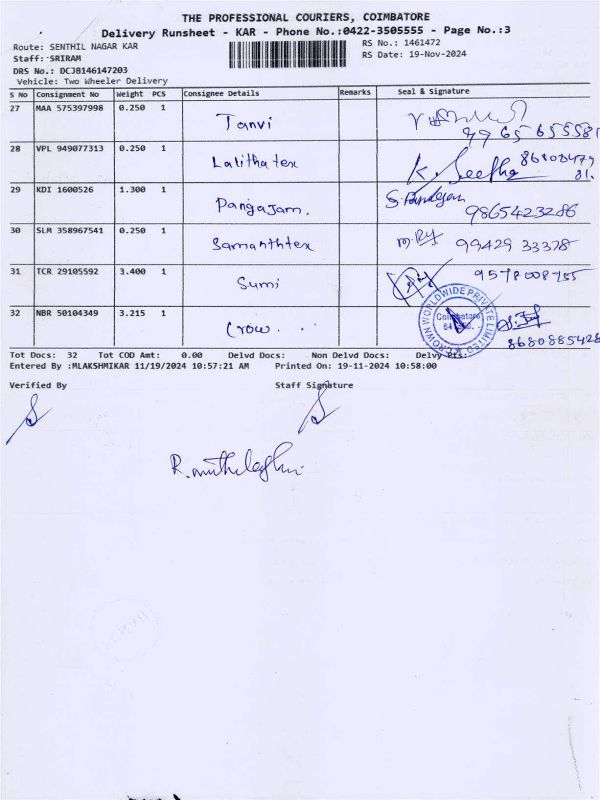 THE PROFESSIONAL COURIERS, COIMBATORE
Delivery Runsheet - KAR - Phone No.:0422-3505555 - Page No.:3
Route: SENTHIL NAGAR KAR RS No.: 1461472
Staff: SRIRAM RS Date: 19-Nov-2024
DRS No.: DCJB146147203
Vehicle: Two Wheeler Delivery
S No Consignment No Weight PCS Consignee Details Remarks Seal & Signature
27 MAA 575397998 0.250 1 Tanvi
28 VPL 949077313 0.250 1 Lalithatex K. Seetha
29 KDI 1600526 1.300 1 Pangajam. 9865423286
30 SLM 358967541 0.250 1 Samanthtex 99429 33378
31 TCR 29105592 3.400 1 Sumi
32 NBR 50104349 3.215 1 Crow. . . 8680885428
CROWN WORLDWIDE PRIVATE LIMITED
Coimbatore
Tot Docs: 32 Tot COD Amt: 0.00 Delvd Docs: Non Delvd Docs: Delvy Pts:
Entered By :MLAKSHMIKAR 11/19/2024 10:57:21 AM Printed On: 19-11-2024 10:58:00
Verified By Staff Signature